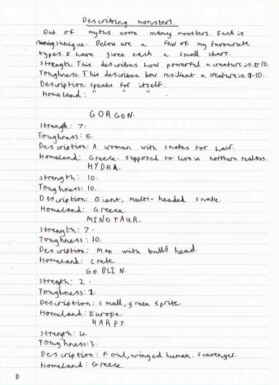 Describing monsters
Out of myths come many monsters. Each is
unique. Below are a few of my favourite
types & have given each a small chart.
Strength: This describes how powerful a creature is 0-10.
Toughness: This describes how resilient a creature is 0-10.
Description: speaks for itself.
Homeland: " " "
GORGON
Strength: 7.
Toughness: 5.
Description: A woman with snakes for hair.
Homeland: Greece. Supposed to live in northern realms.
HYDRA.
Strength: 10.
Toughness: 10.
Description: Giant, multi-headed snake.
Homeland: Greece
MINOTAUR.
Strength: 7.
Toughness: 10.
Description: Man with bulls head.
Homeland: Crete.
GOBLIN.
Strength: 2.
Toughness:
Description: Small, green sprite.
Homeland: Europe.
HARPY
Strength: 4.
Toughness: 3.
Description: Foul, winged human. Scavenger.
Homeland: Greece.